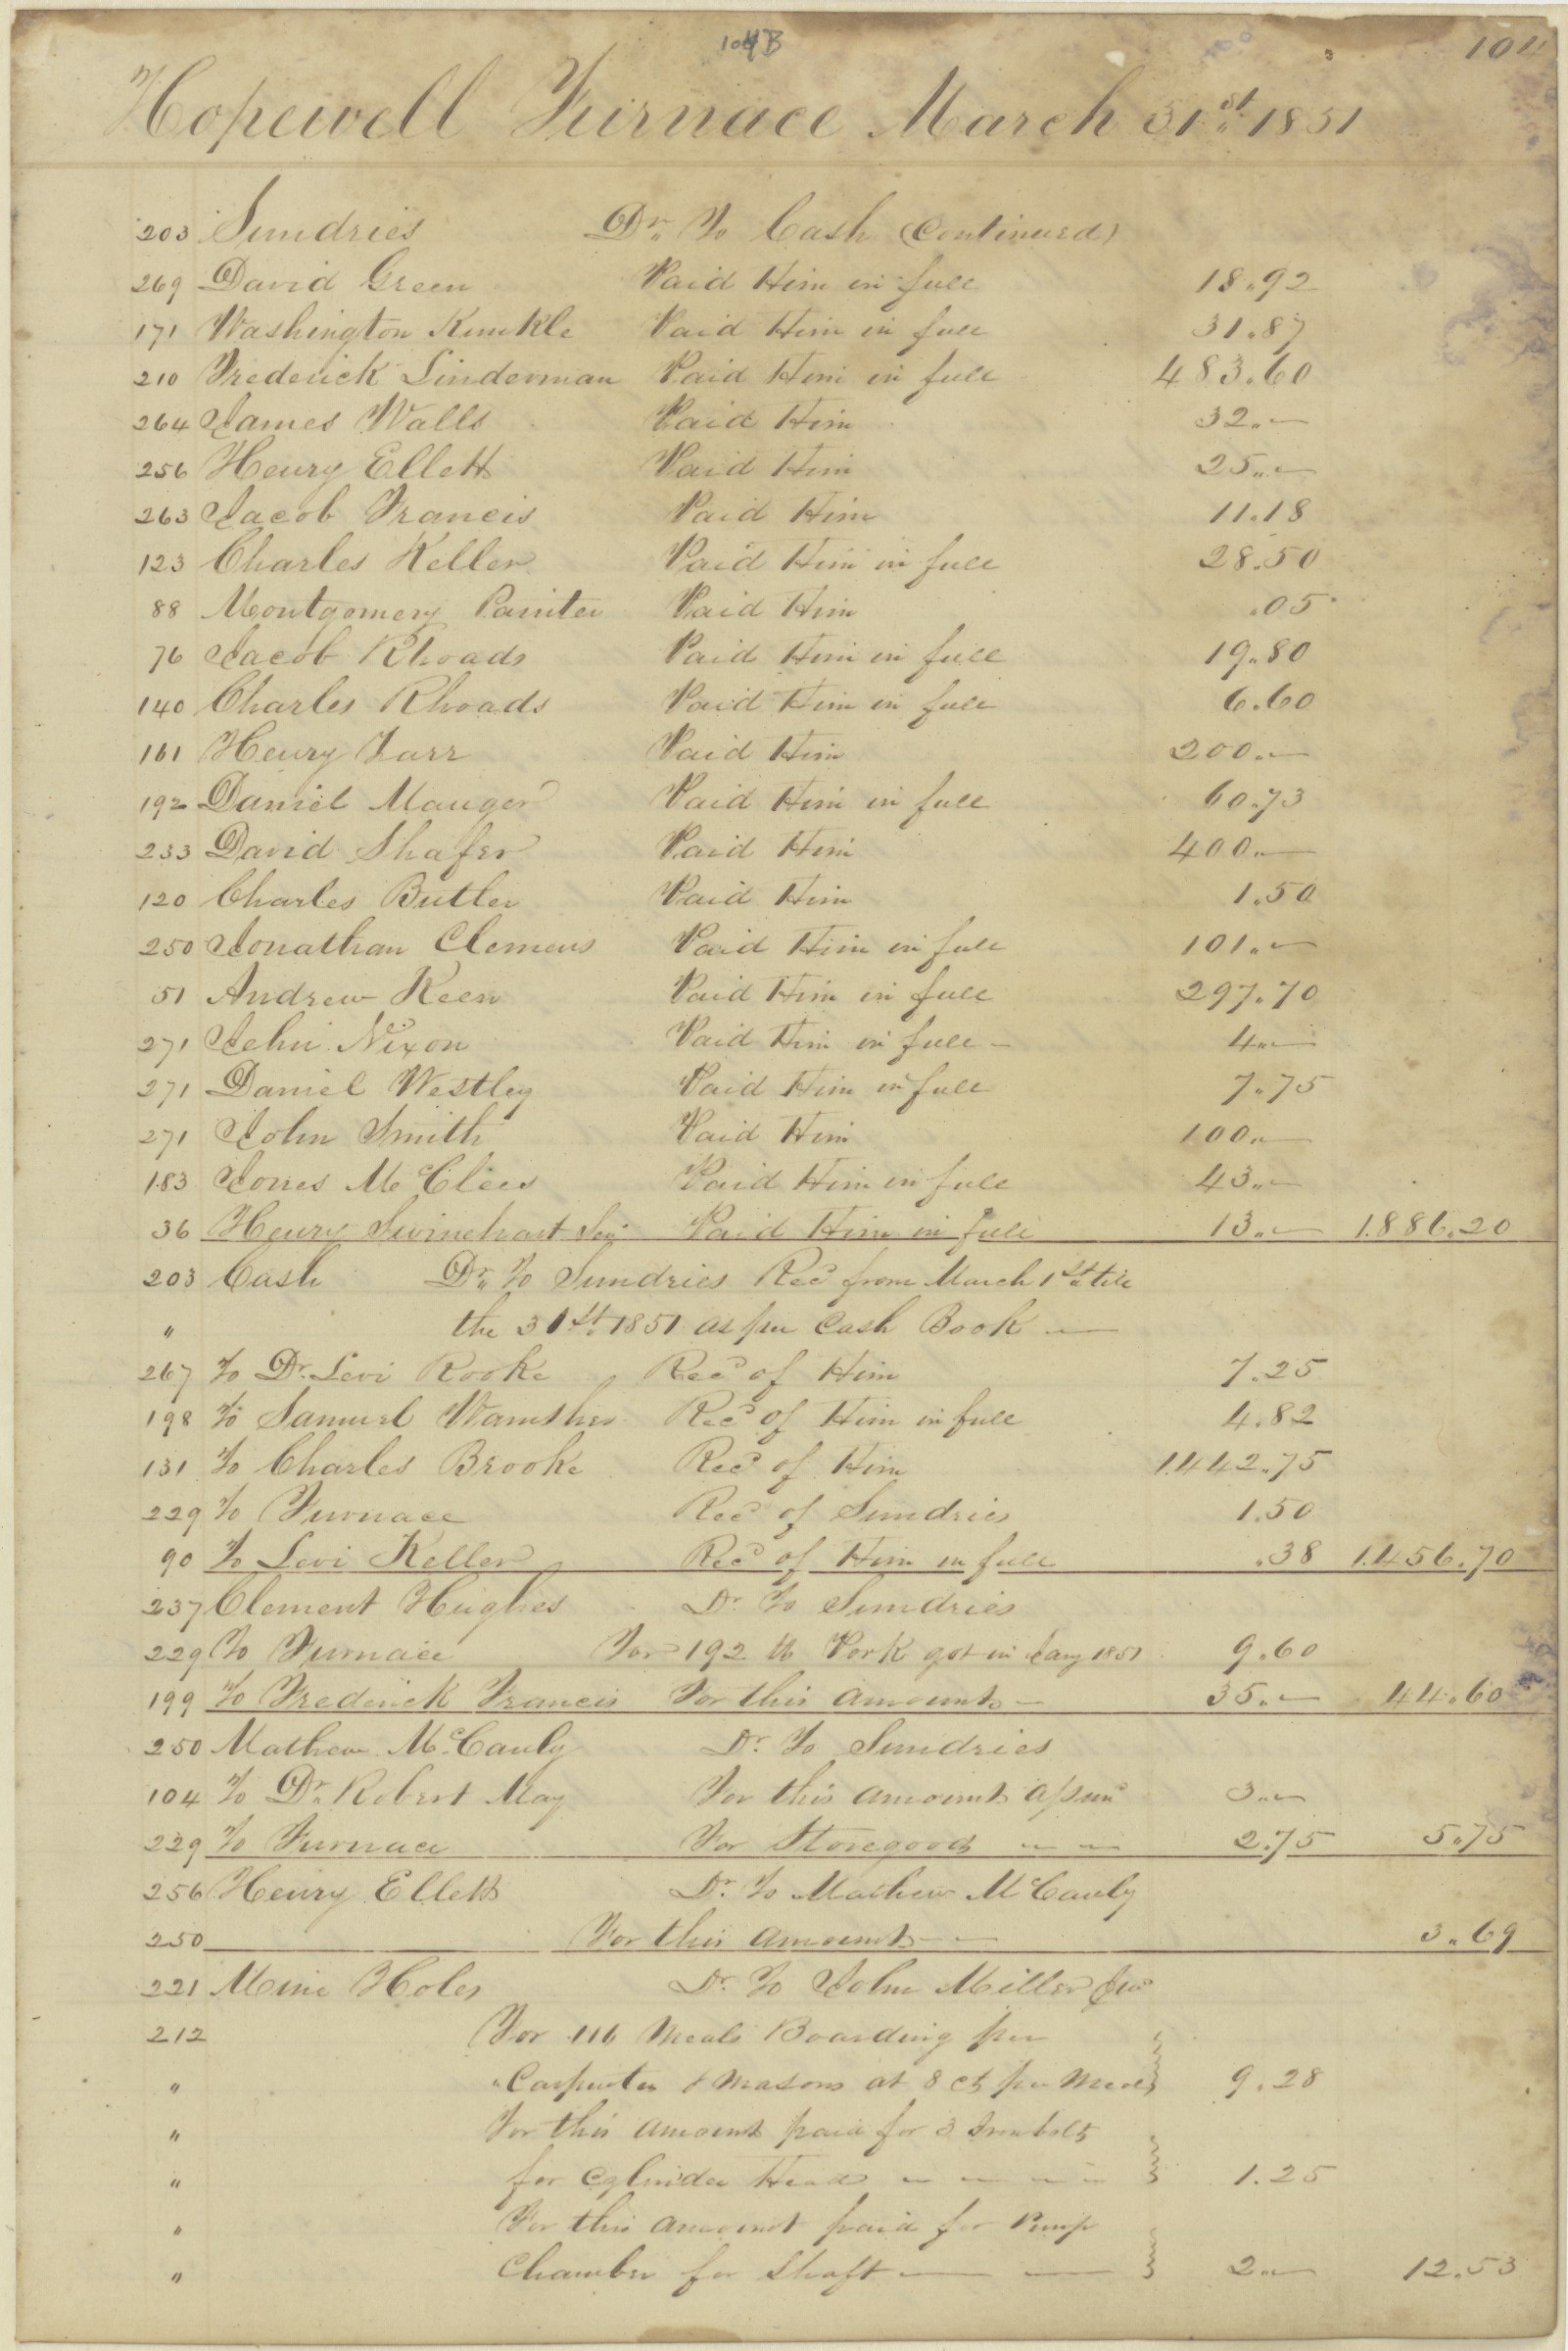 104B
104
Hopewell Furnace March 31st 1851
203 Sundries Dr. To Cash (Continued)
269 David Green Paid Him in full 18.92
171 Washington Kunkle Paid Him in full 31.87
210 Frederick Linderman Paid Him in full 483.60
264 James Walls Paid Him 32.—
256 Henry Ellett Paid Him 25.—
263 Jacob Francis Paid Him 11.18
123 Charles Keller Paid Him in full 28.50
88 Montgomery Painter Paid Him .05
76 Jacob Rhoads Paid Him in full 19.80
140 Charles Rhoads Paid Him in full 6.60
161 Henry Tarr Paid Him 200.—
192 Daniel Mauger Paid Him in full 60.73
233 David Shafer Paid Him 400.—
120 Charles Butler Paid Him 1.50
250 Jonathan Clemens Paid Him in full 101.—
51 Andrew Keen Paid Him in full 297.70
271 John Nixon Paid Him in full — 4.—
271 Daniel Westley Paid Him in full 7.75
271 John Smith Paid Him 100.—
183 Jones McClees Paid Him in full 43.—
36 Henry Swinehart Sen Paid Him in full 13.— 1886.20
203 Cash Dr. To Sundries Recd from March 1st till
" the 31st 1851 as per Cash Book —
267 To Dr. Levi Rooke Recd of Him 7.25
198 To Samuel Wamsher Recd of Him in full 4.82
131 To Charles Brooke Recd of Him 1442.75
229 To Furnace Recd of Sundries 1.50
90 To Levi Keller Recd of Him in full .38 1456.70
237 Clement Hughes Dr. To Sundries
229 To Furnace For 192 lb Pork got in Jany 1851 9.60
199 To Frederick Francis For this amount — 35.— 44.60
250 Mathew McCauly Dr. To Sundries
104 To Dr. Robert May For this amount assund 3.—
229 To Furnace For Storegoods — — 2.75 5.75
256 Henry Ellett Dr. To Mathew McCauly
250 For this amount — — 3.69
221 Mine Holes Dr. To John Miller Jur
212 For 116 Meals Boarding per
" Carpenter & Masons at 8 cts per Meal 9.28
" For this amount paid for 3 Iron bolts
" for Cylinder Head — — — — 1.25
" For this amount paid for Pump
" Chamber for Shaft — — 2.— 12.53